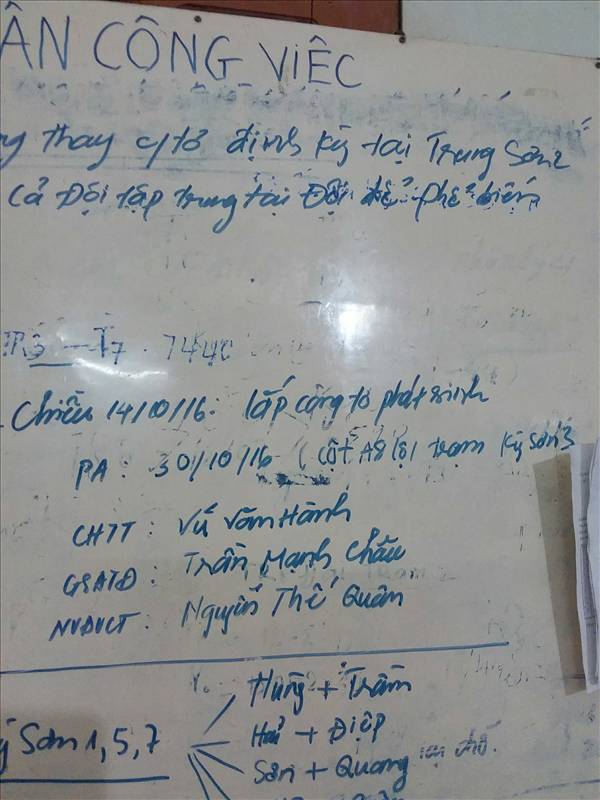 ÂN CÔNG VIỆC
ng thay c/tơ định kỳ tại Trung Sơn 2
Cả Đội tập trung tại Đội để phổ biến
Chiều 14/10/16: lắp công tơ phát sinh
PA: 30/10/16 (Cột A8 lộ 1 trạm Kỳ Sơn 3
CHTT: Vũ Văn Hành
GSATĐ: Trần Mạnh Châu
NVĐVCT: Nguyễn Thế Quân
Hùng + Trầm
ỳ Sơn 1,5,7
Hải + Điệp
Sơn + Quang tại chỗ.